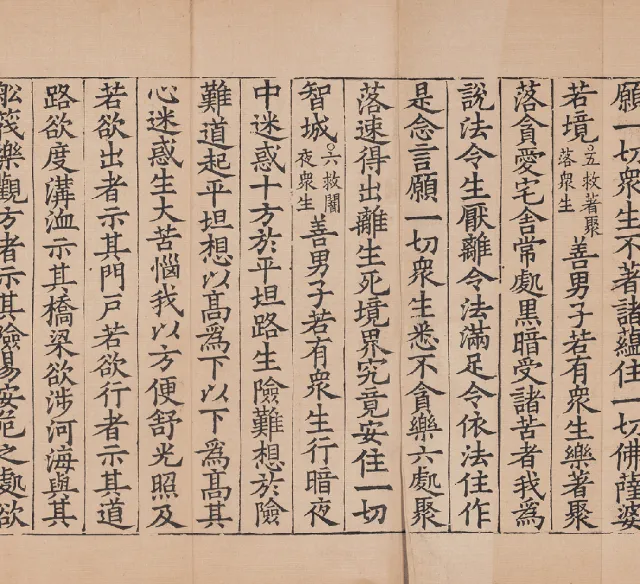 願一切衆生不著諸蘊住一切佛薩婆
若境○五救著聚落衆生善男子若有衆生樂著聚
落貪愛宅舍常處黑暗受諸苦者我爲
說法令生厭離令法滿足令依法住作
是念言願一切衆生悉不貪樂六處聚
落速得出離生死境界究竟安住一切
智城○六救闇夜衆生善男子若有衆生行暗夜
中迷惑十方於平坦路生險難想於險
難道起平坦想以髙爲下以下爲髙其
心迷惑生大苦惱我以方便舒光照及
若欲出者示其門戸若欲行者示其道
路欲度溝洫示其橋梁欲涉河海與其
舩筏樂觀方者示其險易安危之處欲